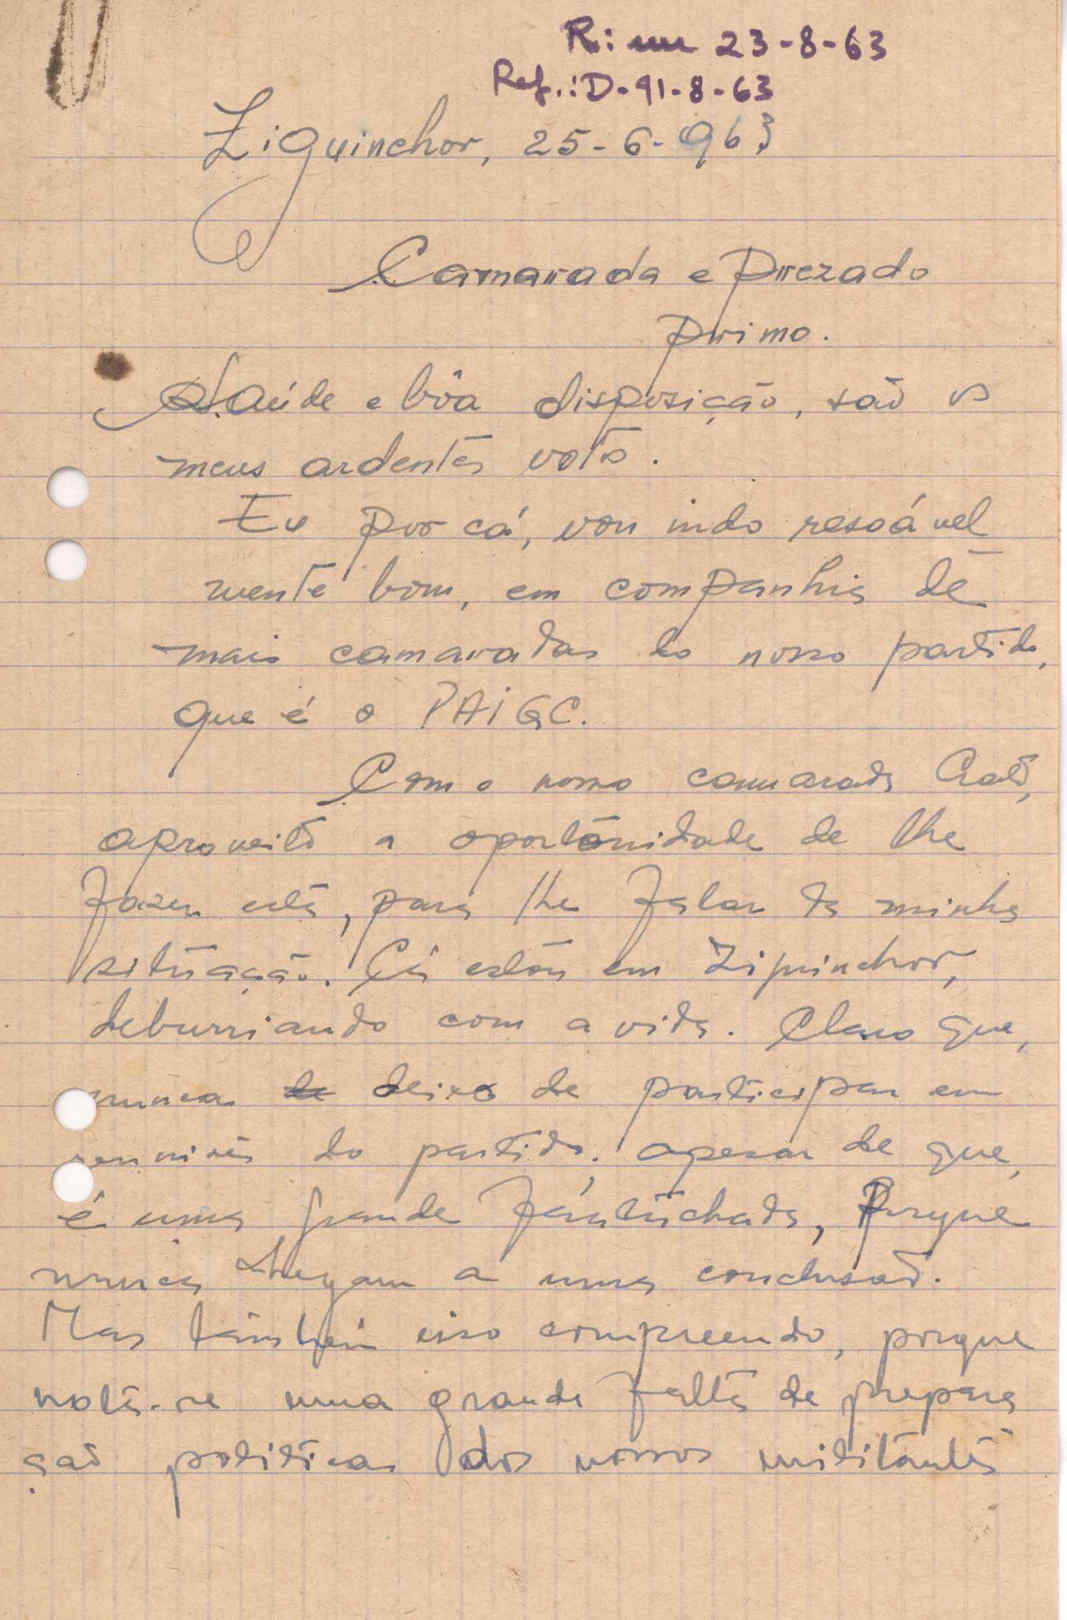 R: em 23-8-63
Ref.: D-91-8-63
Ziguinchor, 25-6-963
Camarada e prezado
primo.
Saúde e bôa disposição, são os
meus ardentes votos.
Eu por cá, vou indo resoável
mente bom, em companhia de
mais camaradas do nosso partido,
que é o PAIGC.
Com o nosso camarada
aproveito a oportonidade de lhe
fazer esta, para lhe falar da minha
situação. Cá estou em Ziguinchor,
deburriando com a vida. Claro que,
nunca de deixo de participar em
reuniões do partido, apesar de que,
é uma grande fantuchada, Porque
nunca chegam a uma conclusão.
Mas também isso compreendo, porque
nota-se uma grande falta de prepara
ção politica dos nossos militântes